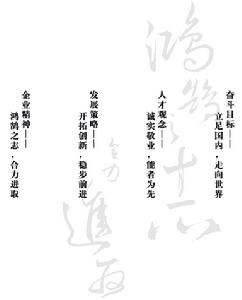 奋斗目标——
立足国内，走向世界
人才观念——
诚实敬业，能者为先
发展策略——
开拓创新，稳步前进
企业精神——
鸿鹄之志，合力进取
鸿鹄之志
合力進取